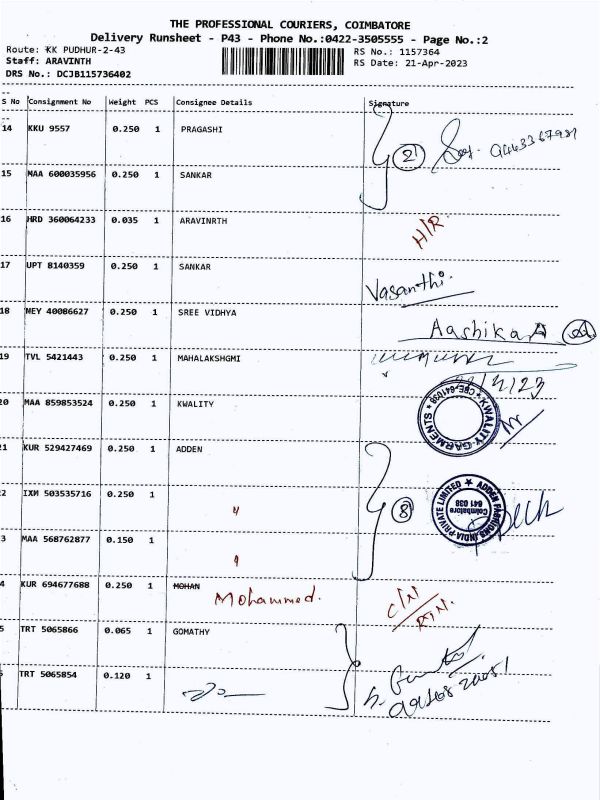 THE PROFESSIONAL COURIERS, COIMBATORE
Delivery Runsheet - P43 - Phone No.:0422-3505555 - Page No.:2
Route: KK PUDHUR-2-43 RS No.: 1157364
Staff: ARAVINTH RS Date: 21-Apr-2023
DRS No.: DCJB115736402
S No Consignment No Weight PCS Consignee Details Signature
14 KKU 9557 0.250 1 PRAGASHI
2
15 MAA 600035956 0.250 1 SANKAR
16 HRD 360064233 0.035 1 ARAVINRTH H/R
17 UPT 8140359 0.250 1 SANKAR Vasanthi
18 MEY 40086627 0.250 1 SREE VIDHYA Aashika A
19 TVL 5421443 0.250 1 MAHALAKSHGMI
20 MAA 859853524 0.250 1 KWALITY KWALITY GARMENTS CBE-641038
21 KUR 529427469 0.250 1 ADDEN
2 IXM 503535716 0.250 1 " 8 ADDEN FABRIONS INDIA PRIVATE LIMITED Coimbatore 641 038
3 MAA 568762877 0.150 1 "
4 KUR 694677688 0.250 1 MOHAN Mohammed.
5 TRT 5065866 0.065 1 GOMATHY
TRT 5065854 0.120 1